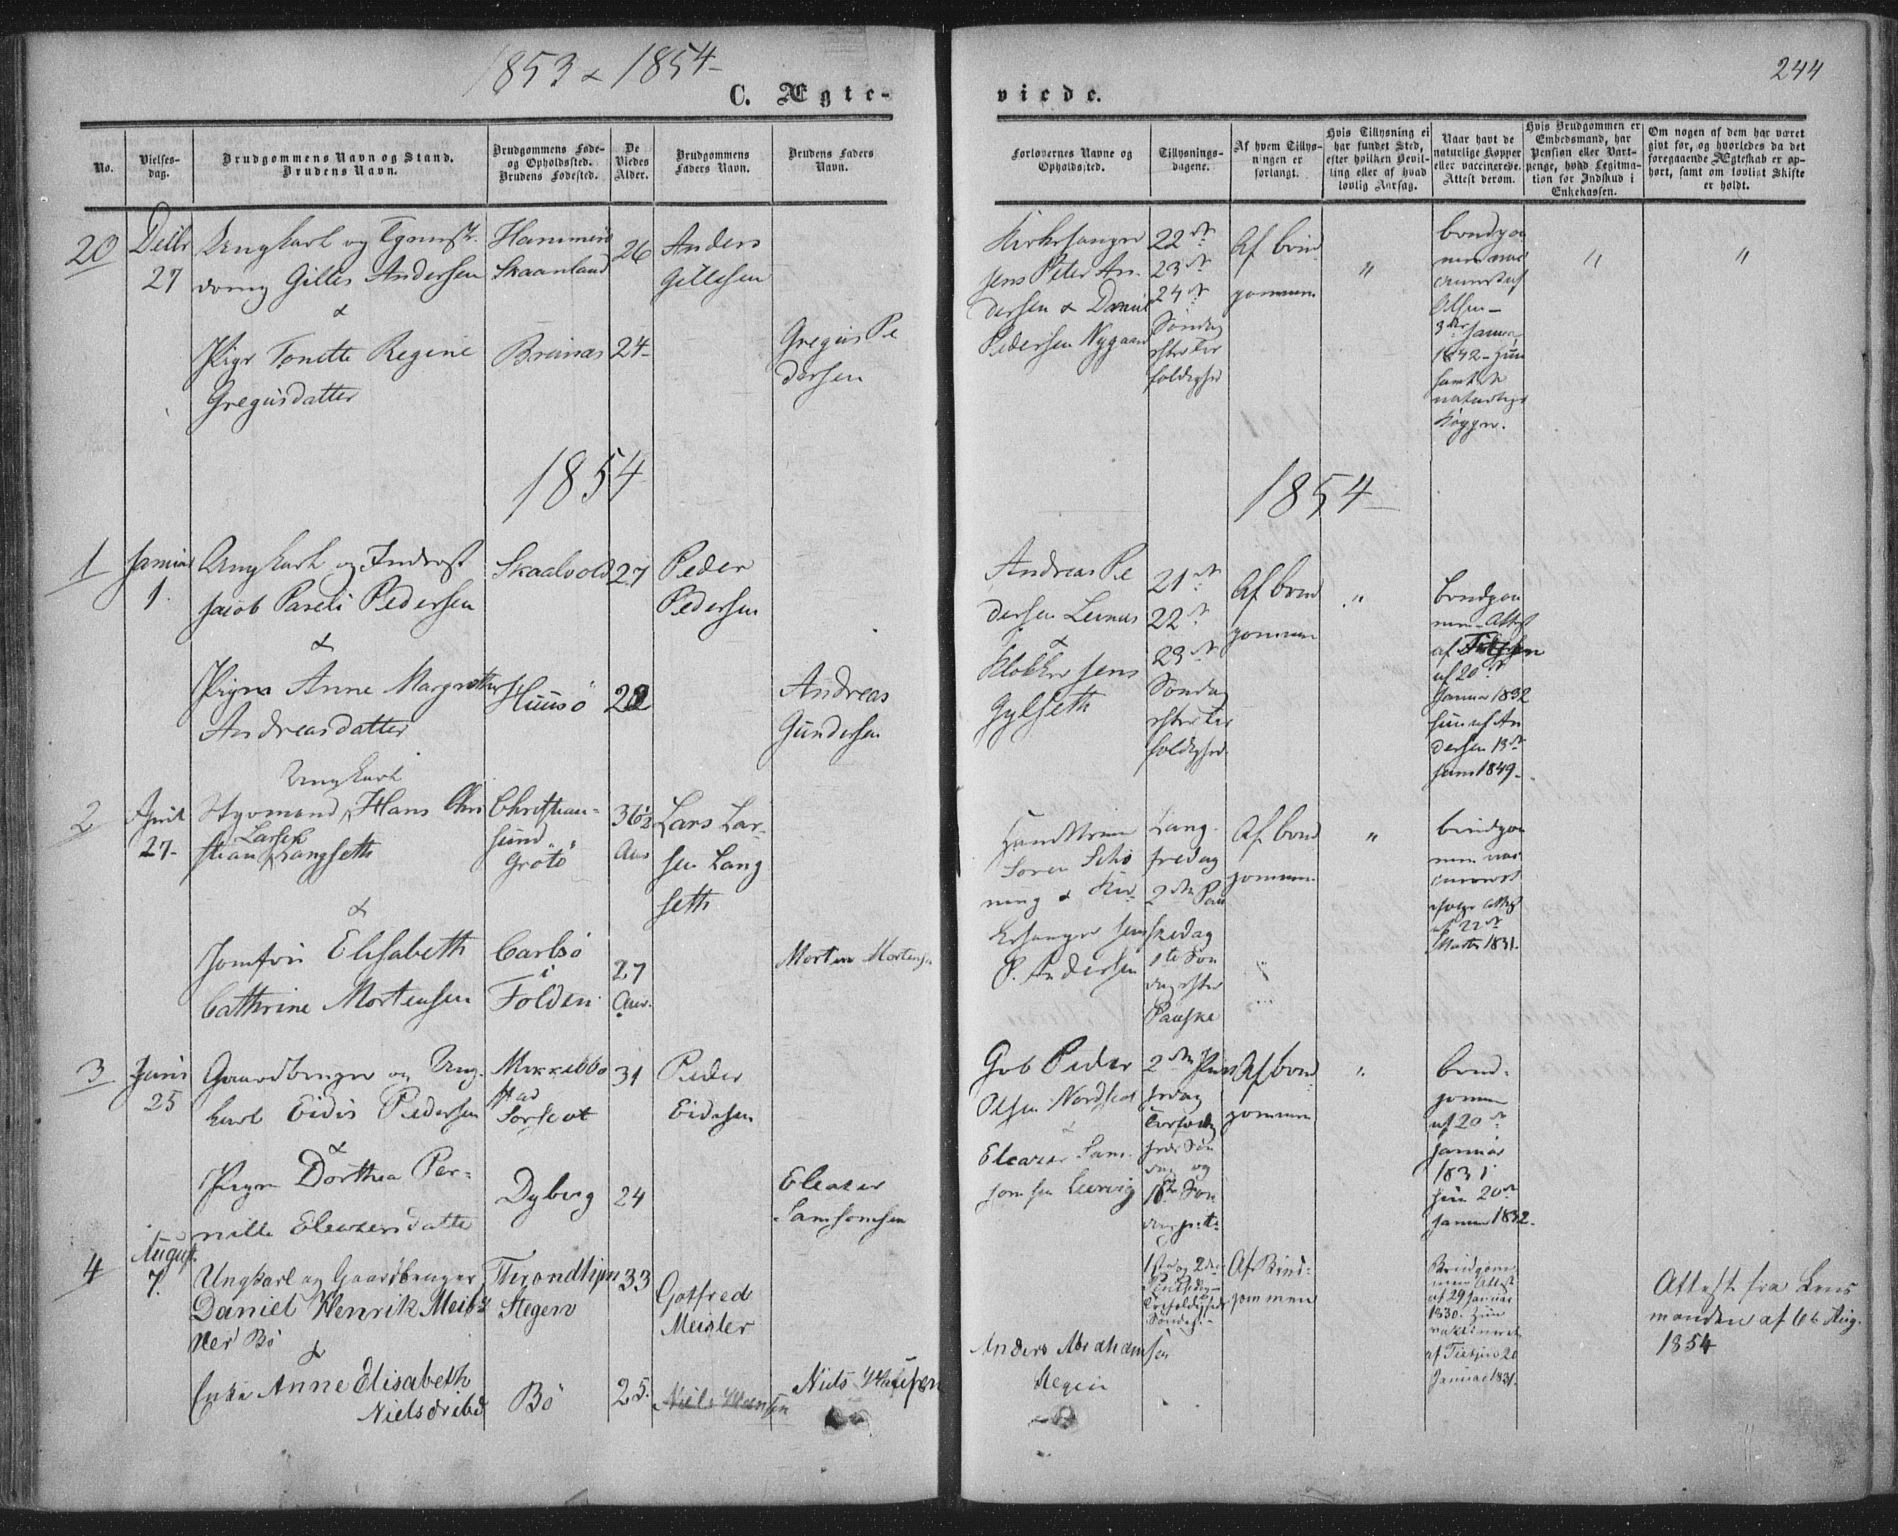 1853 & 1854
244
C. Ægte-
viede.
No.
Vielses-
dag.
Brudgommens Navn og Stand.
Brudens Navn.
Brudgommens Føde-
og Opholdssted.
Brudens Fødested.
De
Viedes
Alder.
Brudgommens
Faders Navn.
Brudens Faders
Navn.
Forlovernes Navne og
Opholdssted.
Tillysnings-
dagene.
Af hvem Tillys-
ningen er
forlangt.
Hvis Tillysning ei
har fundet Sted,
efter hvilken Bevil-
ling eller af hvad
lovlig Aarsag.
Naar havt de
naturlige Kopper
eller vaccinerede.
Attest derom.
Hvis Brudgommen er
Embedsmand, har
Pension eller Vart-
penge, hvad Legitima-
tion for Indskud i
Enkekassen.
Om nogen af dem har været
givt før, og hvorledes da det
foregaaende Ægteskab er op-
hørt, samt om lovligt Skifte
er holdt.
20
Decbr
27
Ungkarl og
Gilles Andersen
&
Pige Tonette Regine
Gregusdatter
Skaanland
Breinæs
26
24
Anders
Gillesen
Gregus Pe
dersen
Kirkesanger
Jens Peter An-
dersen & Daniel
Pedersen Nygaard
22de
23de
24de
Søndag
efter Tre
foldighed
Af Brud
gommen
"
Brudgom
men
Olsen
1842 - Hun
naturlige
Kopper.
"
"
1854
1854
1
Januar
1.
Ungkarl og
Jacob Pareli Pedersen
&
Pigen Anne Margrethe
Andreasdatter
Skaalvold
Huusö
27
22
Peder
Pedersen
Andreas
Gundersen
Andreas Pe
dersen Leines
&
Klokker Jens
Gylseth
21de
22de
23de
Søndag
efter Tre
foldighed
Af Brud
gommen
"
Brudgom
men Attest
af 20de
Januar 1832
Hun af An
dersen 13de
Juni 1849.
2
April
27.
Ungkarl
Styrmand Hans Chri
stian Larsen Langseth
&
Jomfru Elisabeth
Cathrine Mortensen
Christian-
sund
Grotö
Carlsö
i
Folden
36½
Aar
27
Aar.
Lars Lar-
sen Lang
seth
Morten Mortensen
Søren Schö
ning & Kir-
kesanger Jens
P. Andersen
Lang-
fredag
2den Paa
skedag
1ste Søn
dag efter
Paaske
Af Brud
gommen
"
Brudgom
men
Attest
af 22de
Marts 1831.
3
Juni
25
Gaardbruger og Ung-
karl Eidis Pedersen
&
Pigen Dorthea Per-
nille Eleazersdatte
Mikkelbo
stad
Sorkot
Dyberg
31
24
Peder
Eidesen
Eleazer
Samsomsen
Gbr Peder
Olsen Nordskot
&
Eleazer Sam-
somsen Leervig
2den Pins
Af Brud
gommen
"
Brud-
gommen
af 20de
Januar
1831
Hun 20de
Januar 1832.
4
August
7.
Ungkarl og Gaardbruger
Daniel Henrik Meisz
ler Bö
&
Enke Anne Elisabeth
Nielsdribd
Throndhjem
Stegen
Bö
33
25.
Gotfred
Meisler
Niels Hansen
Niels Hansen
Anders Abrahamsen
1ste og 2den
Pintsedag
Trefoldigheds
Søndag.
Af Brud-
gommen
Brudgom
men Attest
af 29 Januar
1830. Hun
vaksineret
20
Januar 1831.
Attest fra Lens
manden af 6te Aug.
1854